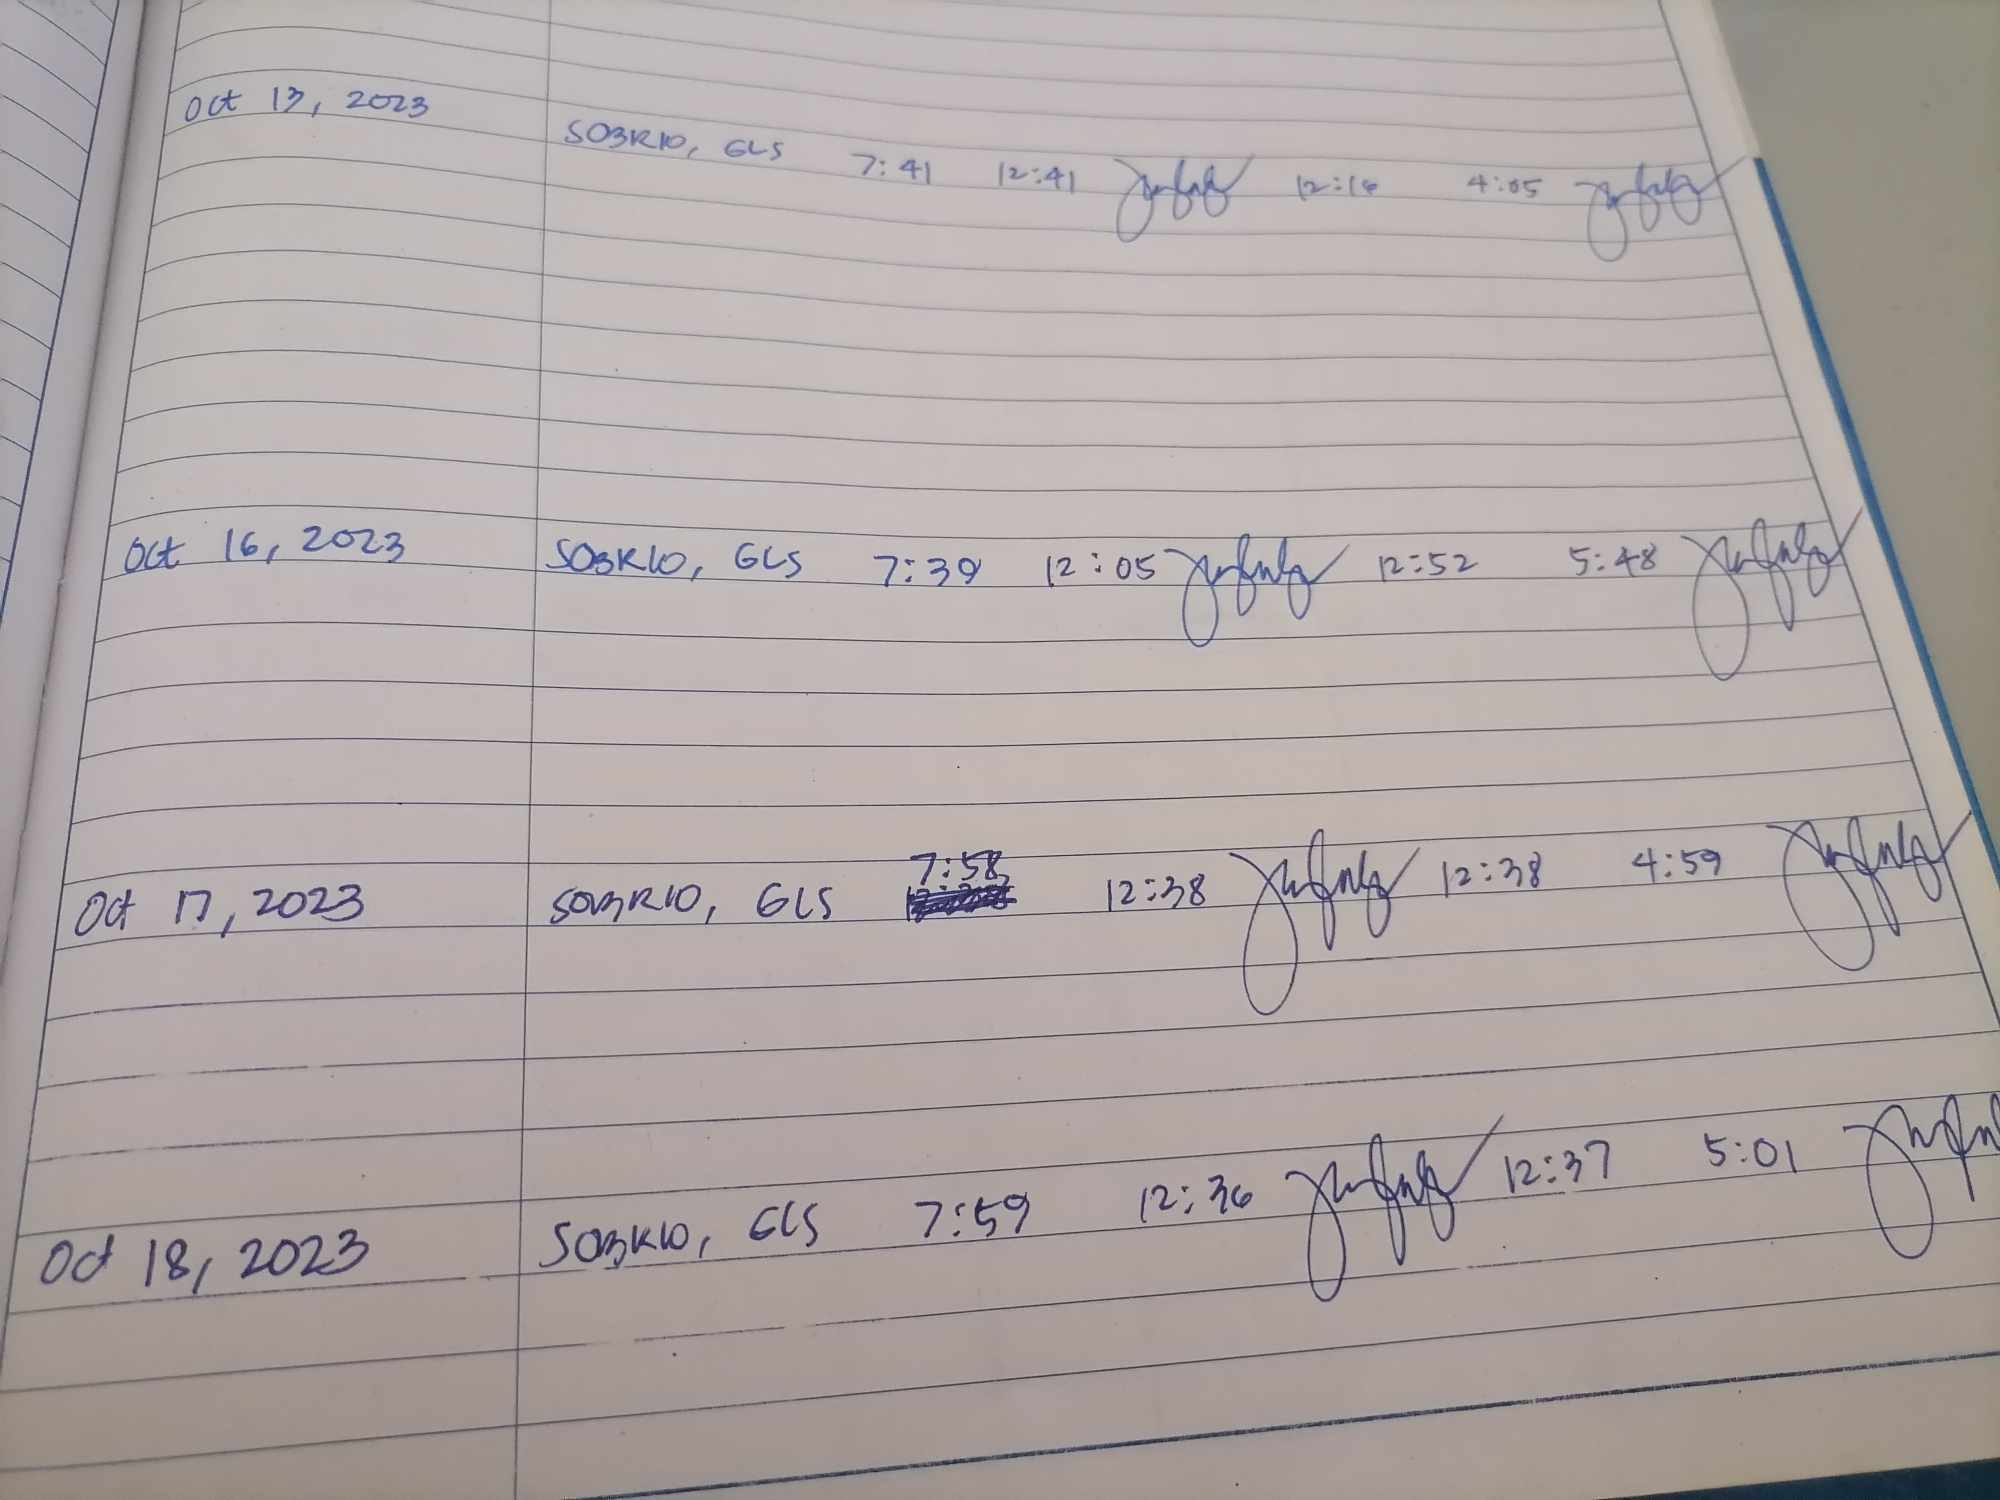 Oct 13, 2023
SOBRIO, GLS 7:41 12:41 12:16 4:05
Oct 16, 2023 SOBRIO, GLS 7:39 12:05 12:52 5:48
7:58
Oct 17, 2023 SOBRIO, GLS 12:38 12:38 4:59
Oct 18, 2023 SOBRIO, GLS 7:59 12:36 12:37 5:01